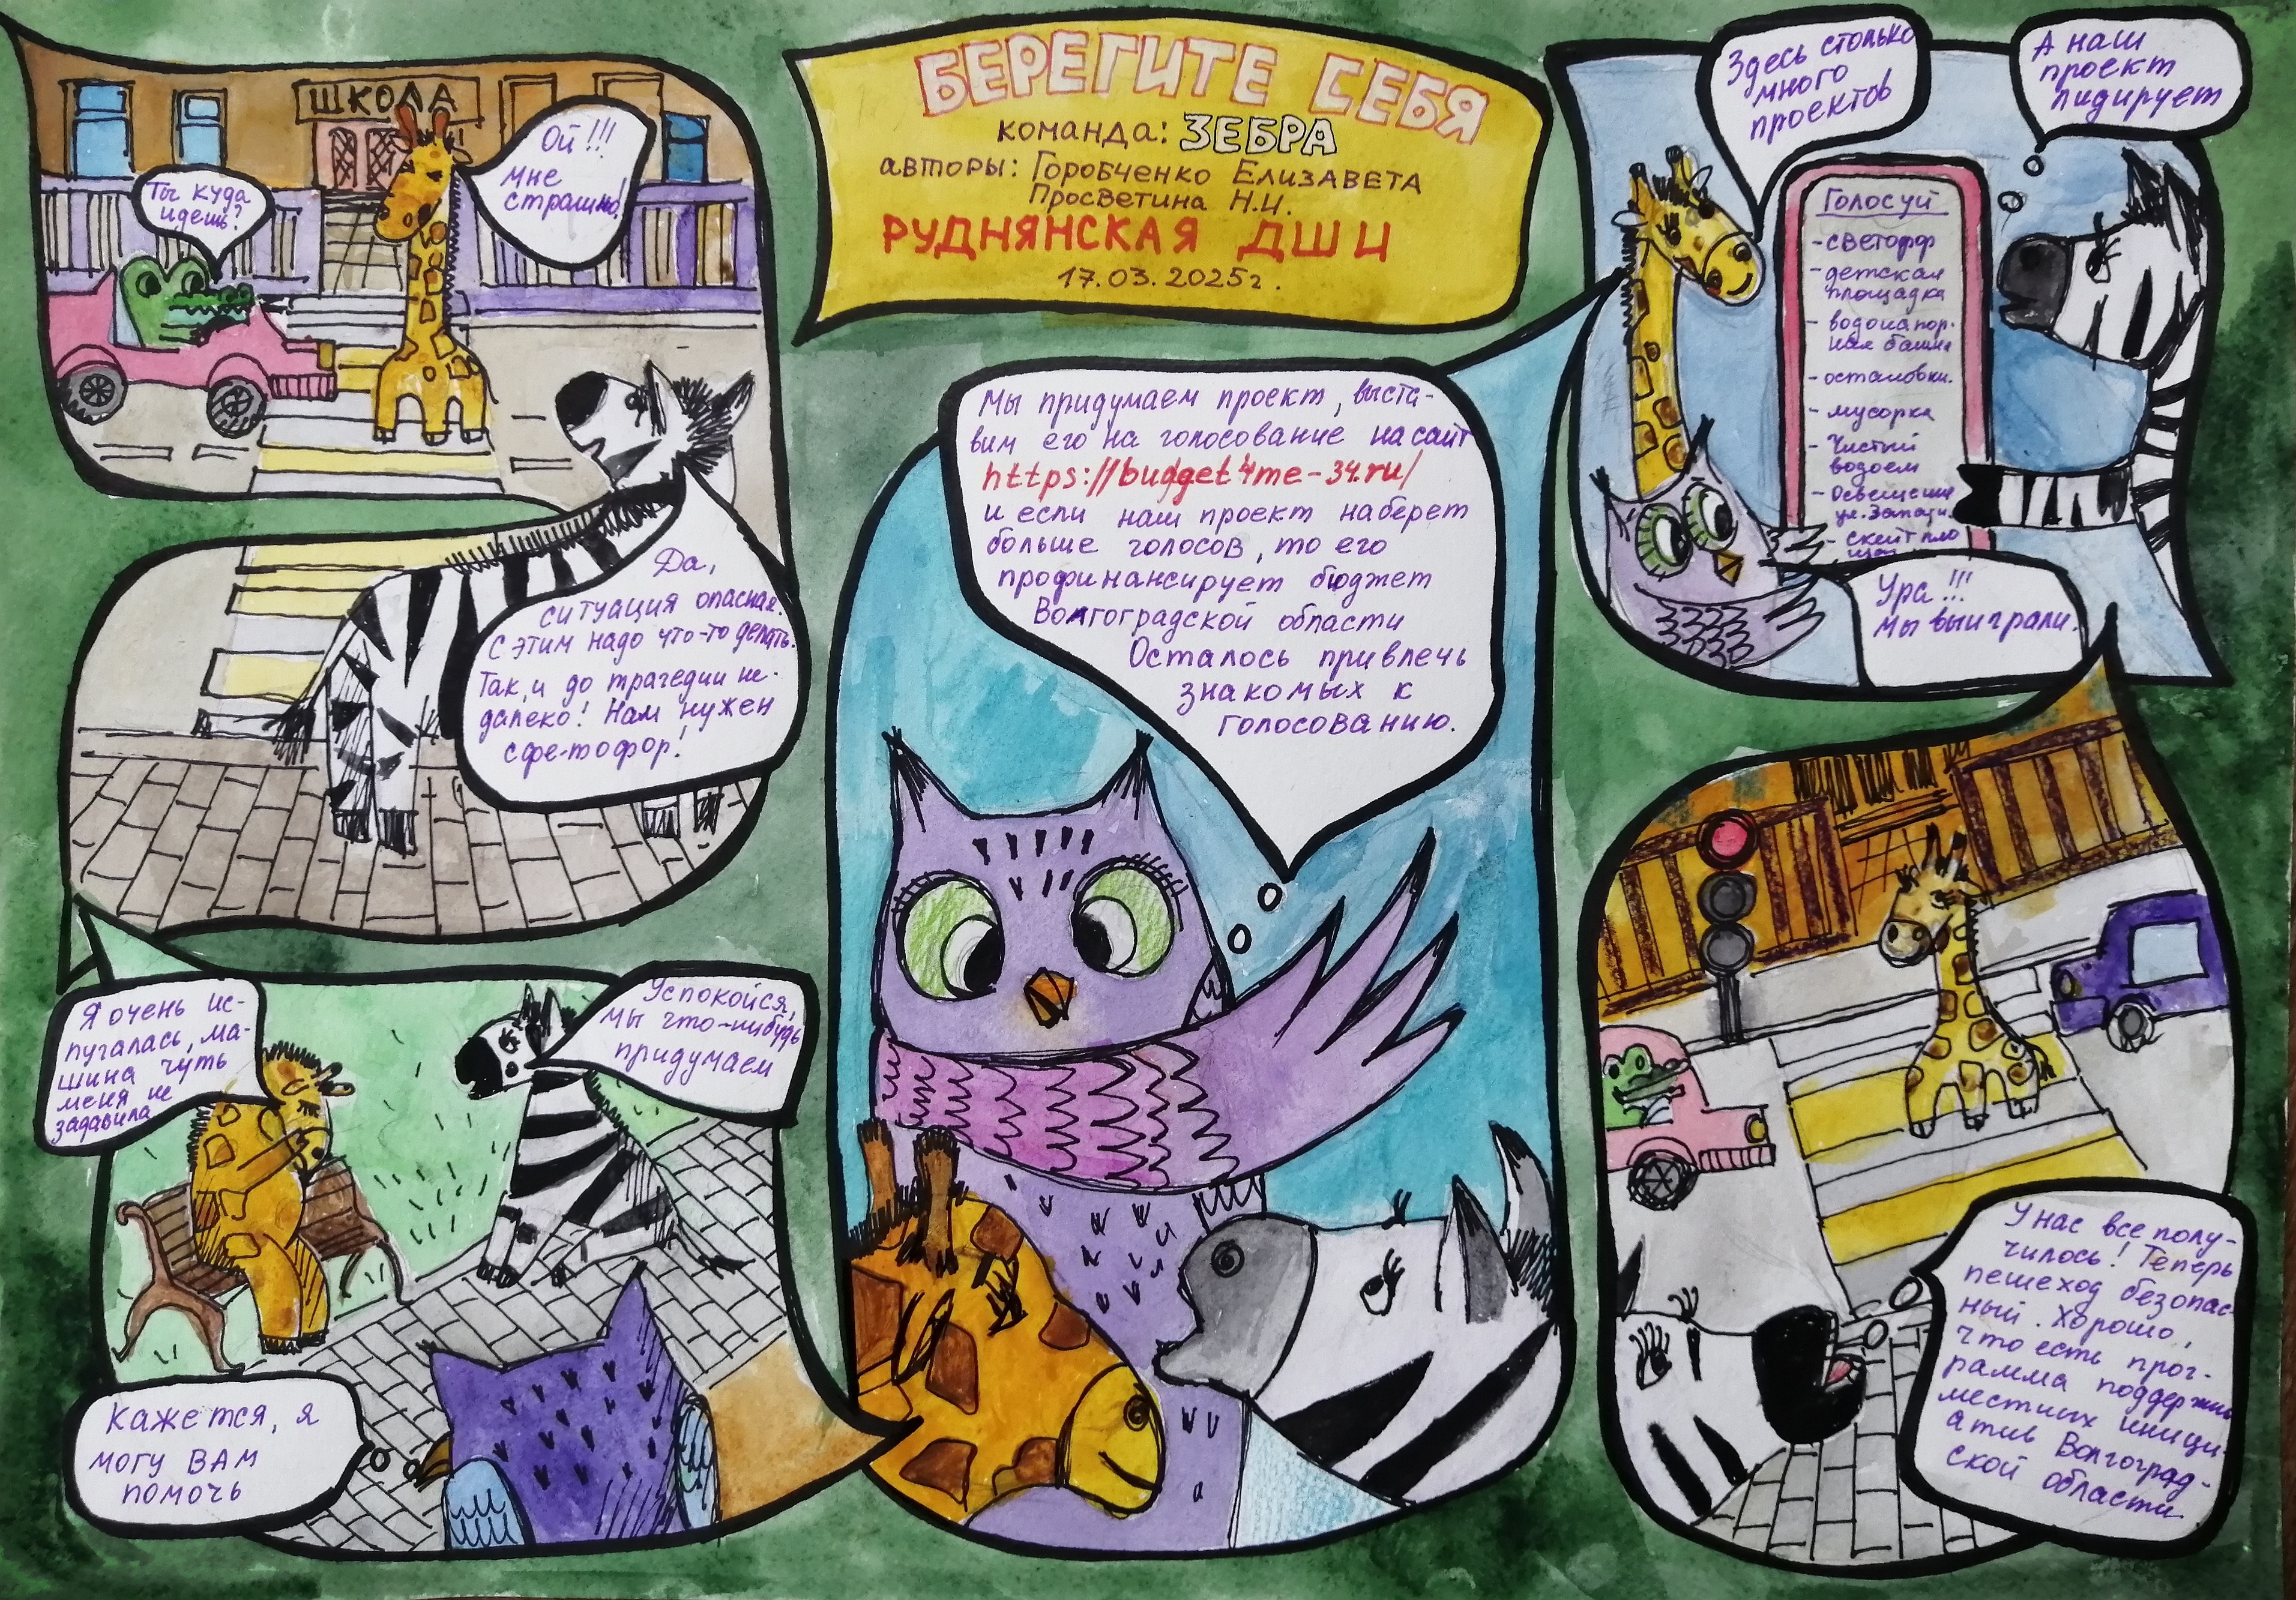 БЕРЕГИТЕ СЕБЯ
команда: ЗЕБРА
авторы: Горобченко Елизавета
Просветина Н.И.
РУДНЯНСКАЯ ДШИ
17.03.2025г.
ШКОЛА
Ты куда
идешь?
Ой!!!
мне
страшно!
Да,
ситуация опасная.
С этим надо что-то делать.
Так, и до трагедии не-
далеко! Нам нужен
сфе-тофор!
Я очень ис-
пугалась, ма-
шина чуть
меня не
задавила
Успокойся,
мы что-нибудь
придумаем
Кажется, я
могу ВАМ
помочь
Мы придумаем проект, выста-
вим его на голосование на сайт
https://budget4me-34.ru/
и если наш проект наберет
больше голосов, то его
профинансирует бюджет
Волгоградской области
Осталось привлечь
знакомых к
голосованию.
Здесь столько
много
проектов
А наш
проект
лидирует
Голосуй
-светофор
-детская
площадка
- водонапор-
ная башня
-остановки.
- мусорка
- Чистый
водоем
- Освещение
ул. Запад.
- скейт пло
Ура!!!
Мы выиграли.
У нас все полу-
чилось! Теперь
пешеход безопас-
ный. Хорошо,
что есть прог-
рамма поддержки
местных иници-
атив Волгоград-
ской области.